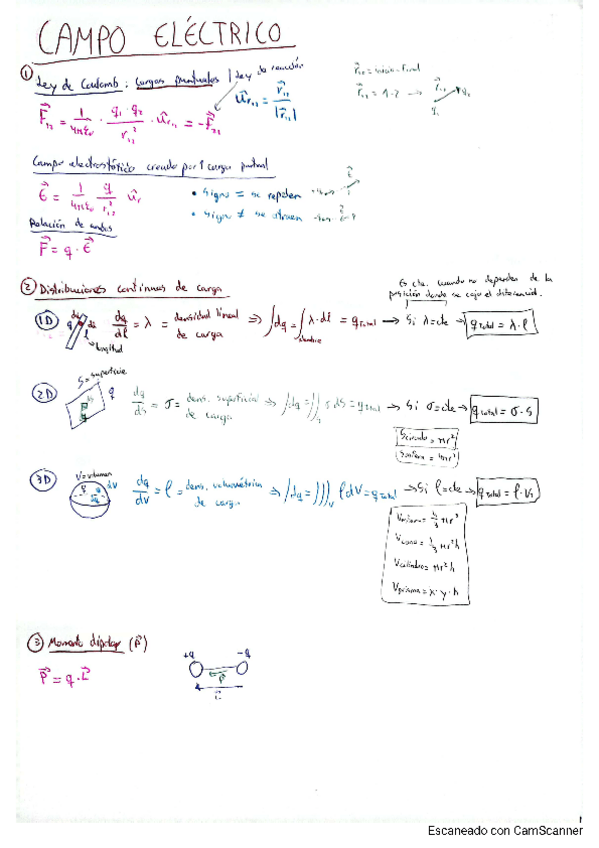 CAMPO ELÉCTRICO
① Ley de Coulomb: Cargas puntuales | Ley de reacción
F₁₂ = 1/(4πε₀) · q₁·q₂/r₁₂² · u_r₁₂ = -F₂₁
u_r₁₂ = r₁₂/|r₁₂|
r₁₂ = 1·2 → r₁₂
Campo electrostático creado por 1 carga puntual
E = 1/(4πε₀) q/r₁₂² u_r
• Signo = se repelen
• Signo ≠ se atraen
Relación de ambos
F = q · E
② Distribuciones continuas de carga
Es cte. cuando no depende de la
posición donde se coja el diferencial.
1D dq/dl = λ = densidad lineal de carga ⇒ ∫dq = ∫ λ·dl = q total → Si λ=cte → q total = λ·l
longitud
S=superficie
2D q dq/ds = σ = dens. superficial de carga ⇒ ∫dq = ∬ₛ σ dS = q total → Si σ=cte → q total = σ·S
Scírculo = πr²
Sesfera = 4πr²
V=volumen
3D dV dq/dV = ρ = dens. volumétrica de carga ⇒ ∫dq = ∭ᵥ ρ dV = q total → Si ρ=cte → q total = ρ·V
Vesfera = 4/3 πr³
Vcono = 1/3 πr²h
Vcilindro = πr²h
Vprisma = x·y·h
③ Momento dipolar (P)
P = q·L
+q -q
P
L
Escaneado con CamScanner